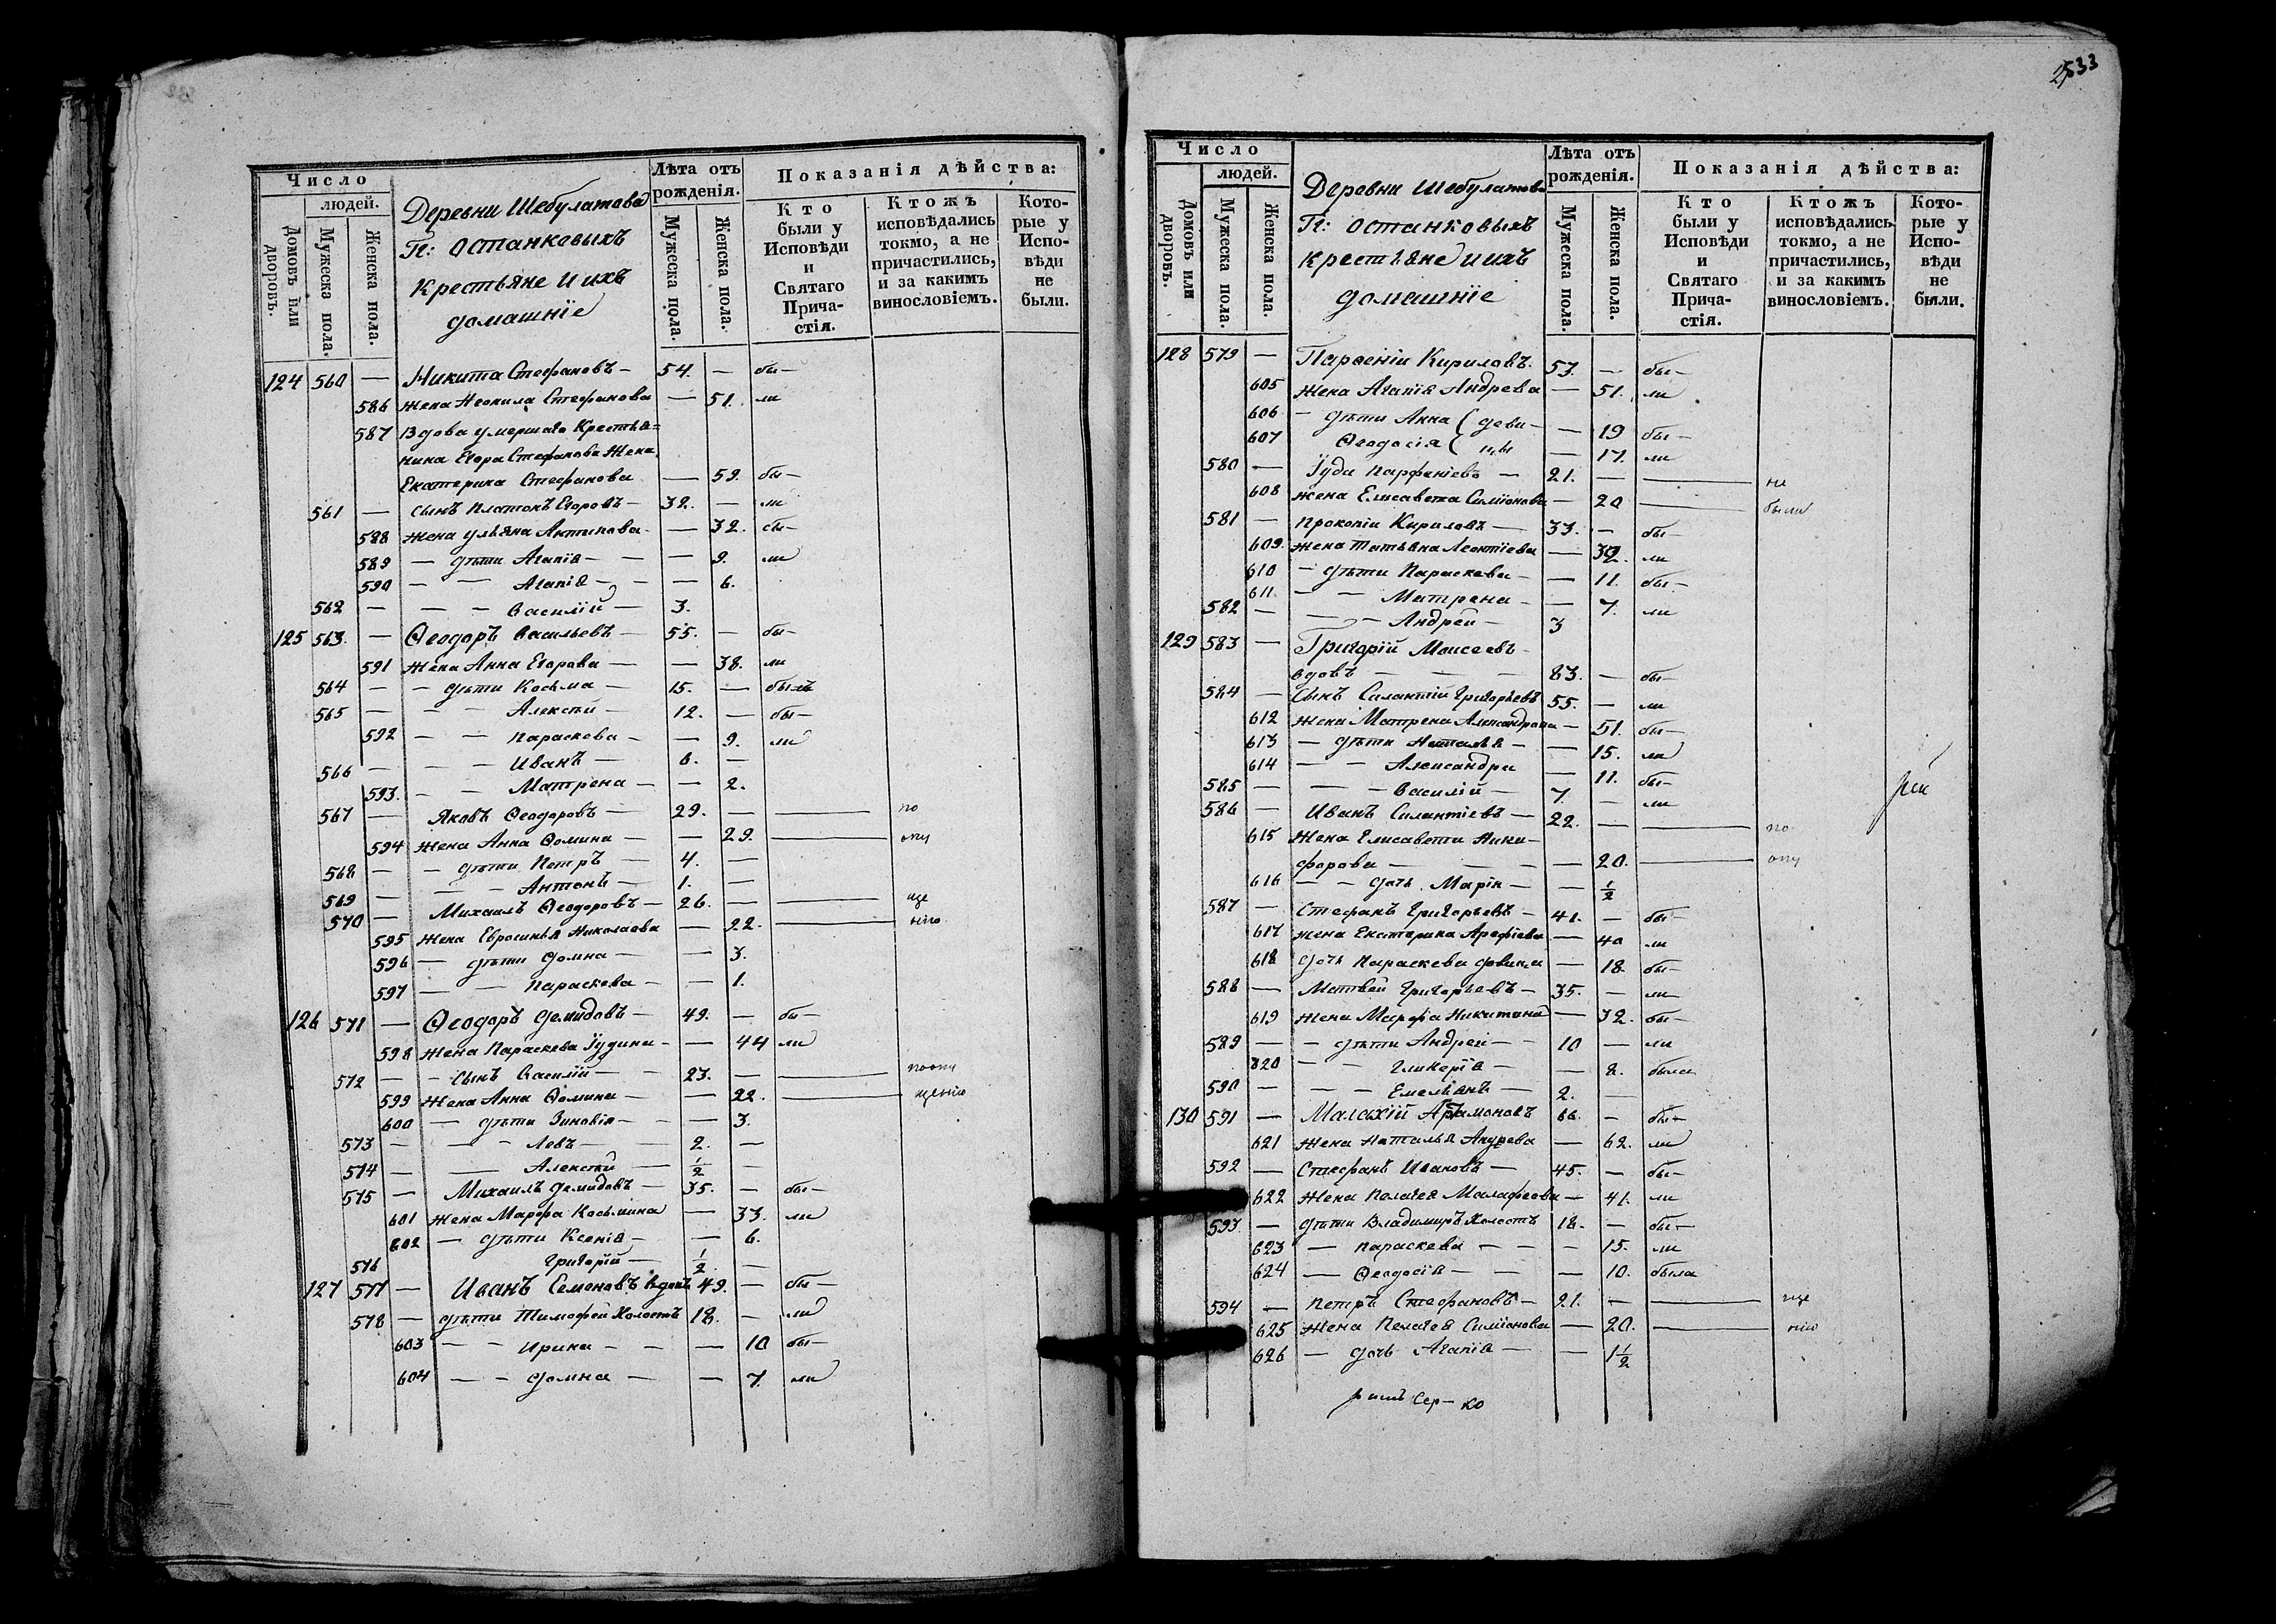 Число
людей.
Домовъ или дворовъ.
Мужеска пола.
Женска пола.
Деревни Шебулатова
П: Останковыхъ
крестьяне и ихъ
домашніе
Лѣта отъ рожденія.
Мужеска пола.
Женска пола.
Показанія дѣйства:
Кто были у Исповѣди и Святаго Прича-стія.
Ктожъ исповѣдались токмо, а не причастились, и за какимъ винословіемъ.
Кото-рые у Испо-вѣди не были.
124 560 — Никита Стефановъ — 54. — бы—
586 жена Неонила Стефанова — 51. ли
587 Вдова умершаго Крестья=
нина Егора Стефанова жена
Екатерина Стефанова — 59. бы—
561 — сынъ Платонъ Егоровъ — 32. — ли
588 жена Ульяна Антипова — — 32. бы—
589 — дѣти Агапія — — — 9. ли
590 — — Агапія — — — 6.
562 — — — Василій — 3.
125 563. — Ѳеодоръ Васильевъ — 55. — бы—
591 жена Анна Егорова — — 38. ли
564 — — дѣти Косьма — 15. — былъ
565 — — — Алексѣй — 12. — бы—
592 — — Параскева — — 9. ли
566 — — — Иванъ — 6. —
593. — — Матрена — — 2.
567 — Яковъ Ѳеодоровъ — 29. — — по
594 жена Анна Ѳомина — — 29. — опу
568 — — дѣти Петръ — 4. —
569 — — — Антонъ — 1. —
570 — Михаилъ Ѳеодоровъ — 26. — — ще
595 жена Евросинья Николаева — 22. — нію
596 — дѣти Домна — — 3.
597 — — Параскева — — 1.
126 571 — Ѳеодоръ Демидовъ — 49. — бы—
598 жена Параскева Іудина — — 44 ли
572 — — сынъ Василій — — 23. — — поопу
599 жена Анна Ѳомина — — 22. — щенію
600 — дѣти Зиновія — — — 3.
573 — — — Левъ — — 2. —
574 — — Алексѣй — 1/2 —
575 — Михаилъ Демидовъ — 35. — бы—
601 жена Марфа Косьмина — 33. ли
602 — дѣти Ксенія — — 6.
576 Григорій — 1/2. —
127 577 — Иванъ Семеновъ вдовъ 49. — бы—
578 — дѣти Тимофей холостъ 18. — ли
603 — — Ирина — — — 10 бы—
604 — — Домна — — 7. ли
2533
Число
людей.
Домовъ или дворовъ.
Мужеска пола.
Женска пола.
Деревни Шебулатова
П: Останковыхъ
крестьяне и ихъ
домашніе
Лѣта отъ рожденія.
Мужеска пола.
Женска пола.
Показанія дѣйства:
Кто были у Исповѣди и Святаго Прича-стія.
Ктожъ исповѣдались токмо, а не причастились, и за какимъ винословіемъ.
Кото-рые у Испо-вѣди не были.
128 579 — Парѳеніи Кириловъ. 53. — бы—
605 жена Агапія Андрева — 51. ли
606 — дѣти Анна ( деви— — 19 бы—
607 Ѳеодосія ( цы — 17. ли
580 — Іуда Парфеніевъ — 21. — — не
608 жена Елисавета Симіонова — 20 — были
581 — Прокопіи Кириловъ — 33. — бы—
609. жена Татьяна Леонтіева — 32. ли
610 — дѣти Параскева — — 11. бы—
611. — — Матрена — — 7. ли
582 — — — Андрей — 3
129 583 — Григорій Моисеевъ —
вдовъ — — — 83. — бы—
584 — Сынъ Силантій Григорьевъ 55. — ли
612 жена Матрена Александрова — 51. бы—
613 — дѣти Наталья — — 15. ли
614 — — Александра — 11. бы—
585 — — — Василій — 7. — ли
586 — Иванъ Силантіевъ — 22. — — по
615 жена Елисавета Ники—
форова — — — — 20. — опу
616 — — дочь Марія — — 1/2
587 — Стефанъ Григорьевъ — 41. — бы—
617 жена Екатерина Арефіева — 40 ли
618 дочь Параскева девица — 18. бы—
588 — Матвей Григорьевъ — 35. — ли—
619 жена Марфа Никитина — 32. бы—
589 — — дѣти Андрей — — 10 — ли
620 — — Гликерія — — 8. была
590 — — — Емельянъ — 2. —
130 591 — Малахій Артамоновъ 66. — бы—
621 жена Наталья Андрева — 62. ли
592 — Стефанъ Ивановъ — 45. — бы—
622 жена Пелагея Малафеева — 41. ли
593. — дѣти Владимиръ холостъ 18. — бы—
623 — Параскева — — — 15. ли
624 — Ѳеодосія — — — 10. была
594 — Петръ Стефановъ — 21. — — ще
625 жена Пелагея Симіонова — 20. — нію
626 — дочь Агапія — — 1 1/2